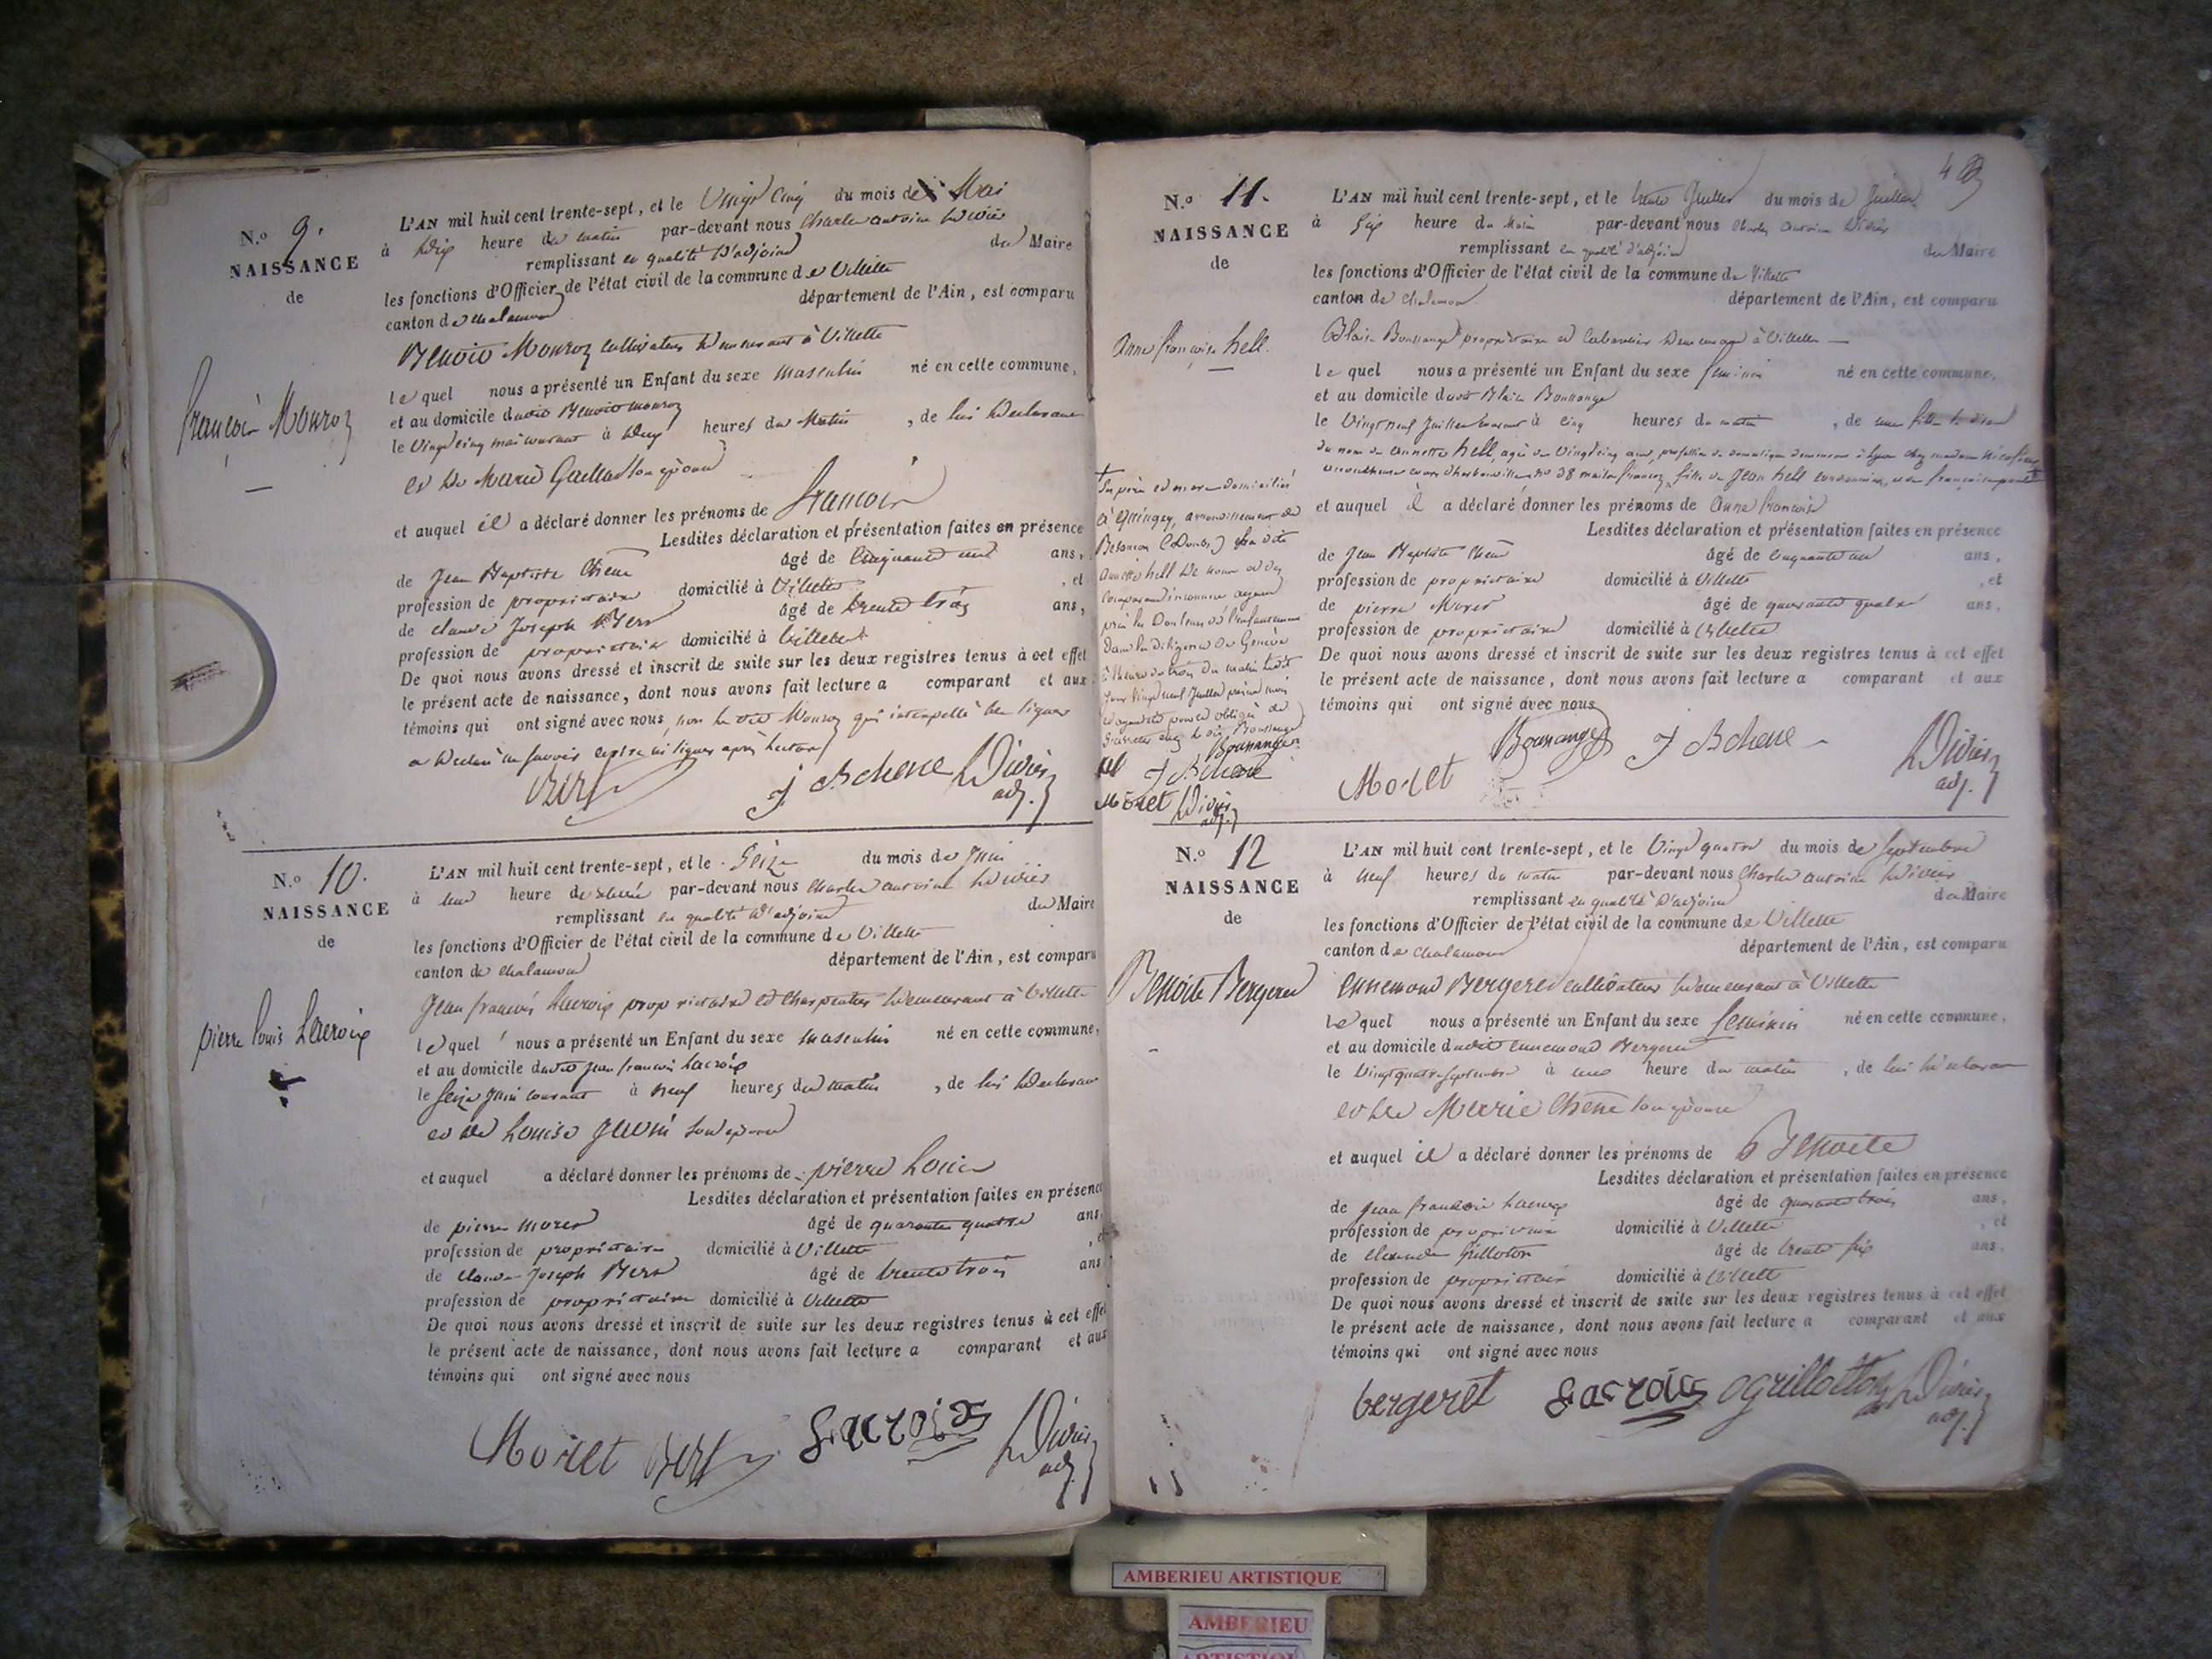 N.o 9.
NAISSANCE
de
françois Monroz
L'AN mil huit cent trente-sept, et le Vingt Cinq du mois de Mai
à dix heure du matin par-devant nous Charles antoine Divier
remplissant en qualité d'adjoint du Maire
les fonctions d'Officier de l'état civil de la commune de Villette
canton de chalamont département de l'Ain, est comparu
Benoit Monroz cultivateur demeurant à Villette
lequel nous a présenté un Enfant du sexe masculin né en cette commune,
et au domicile dudit Benoit monroz
le Vingt cinq mai courant à heures du Matin, de lui declarant
et de Marie Gaillard son épouse
et auquel il a déclaré donner les prénoms de françois
Lesdites déclaration et présentation faites en présence
de Jean Baptiste Chêne âgé de Cinquante une ans,
profession de propriétaire domicilié à Villette, et
de claude Joseph âgé de trente trois ans,
profession de propriétaire domicilié à Villette
De quoi nous avons dressé et inscrit de suite sur les deux registres tenus à cet effet
le présent acte de naissance, dont nous avons fait lecture a comparant et aux
témoins qui ont signé avec nous, non le dit Monroz qui interpellé de signer
a declaré ne savoir après lecture
J B chene Divier
adj.
N.o 10.
NAISSANCE
de
pierre louis Lacroix
L'AN mil huit cent trente-sept, et le Seize du mois de Juin
à une heure de par-devant nous Charles antoine Divier
remplissant en qualité d'adjoint du Maire
les fonctions d'Officier de l'état civil de la commune de Villette
canton de chalamont département de l'Ain, est comparu
Jean françois Lacroix propriétaire et charpentier demeurant à Villette
lequel nous a présenté un Enfant du sexe masculin né en cette commune,
et au domicile dudit Jean françois Lacroix
le Seize Juin courant à neuf heures du matin, de lui declarant
et de Louise son épouse
et auquel a déclaré donner les prénoms de pierre Louis
Lesdites déclaration et présentation faites en présence
de pierre Moret âgé de quarante quatre ans,
profession de propriétaire domicilié à Villette, et
de claude Joseph âgé de trente trois ans
profession de propriétaire domicilié à Villette
De quoi nous avons dressé et inscrit de suite sur les deux registres tenus à cet effet
le présent acte de naissance, dont nous avons fait lecture a comparant et aux
témoins qui ont signé avec nous
Moret Lacroix Divier
adj.
N.o 11.
NAISSANCE
de
Anne françoise hell.
L'AN mil huit cent trente-sept, et le trente Juillet du mois de Juillet
à Six heure du Matin par-devant nous Charles antoine Divier
remplissant en qualité d'adjoint du Maire
les fonctions d'Officier de l'état civil de la commune de Villette
canton de chalamont département de l'Ain, est comparu
Blaise Boussange propriétaire et cabaretier demeurant à Villette
lequel nous a présenté un Enfant du sexe feminin né en cette commune,
et au domicile dudit Blaise Boussange
le Vingt neuf Juillet courant à cinq heures du matin, de une fille se disant
du nom de annette hell, agée de Vingt cinq ans, profession de domestique demeurant à Lyon chez madame
fille de Jean hell et de françoise
et auquel il a déclaré donner les prénoms de Anne françoise
Lesdites déclaration et présentation faites en présence
de Jean Baptiste Chêne âgé de cinquante un ans,
profession de propriétaire domicilié à Villette, et
de pierre Moret âgé de quarante quatre ans,
profession de propriétaire domicilié à Villette
De quoi nous avons dressé et inscrit de suite sur les deux registres tenus à cet effet
le présent acte de naissance, dont nous avons fait lecture a comparant et aux
témoins qui ont signé avec nous
Moret Boussange J B chene Divier
adj.
ses père et mère domiciliés
à Quingey, arrondissement de
Besancon (Doubs) la dite
annette hell
inconnue ayant
pris les Douleurs de l'enfantement
dans la diligence de Genève
à l'heure de trois du matin ledit
jour Vingt neuf Juillet
obligée de
chez le dit Boussange
Boussange
J B chene
Moret Divier
adj.
N.o 12
NAISSANCE
de
Benoite Bergeret
L'AN mil huit cent trente-sept, et le Vingt quatre du mois de Septembre
à neuf heures du matin par-devant nous Charles antoine Divier
remplissant en qualité d'adjoint du Maire
les fonctions d'Officier de l'état civil de la commune de Villette
canton de chalamont département de l'Ain, est comparu
Ennemond Bergeret cultivateur demeurant à Villette
lequel nous a présenté un Enfant du sexe feminin né en cette commune,
et au domicile dudit ennemond Bergeret
le Vingt quatre Septembre à une heure du matin, de lui déclarant
et de Marie Chêne son épouse
et auquel il a déclaré donner les prénoms de Benoite
Lesdites déclaration et présentation faites en présence
de Jean françois Lacroix âgé de quarante trois ans,
profession de propriétaire domicilié à Villette, et
de Grilloton âgé de trente six ans,
profession de propriétaire domicilié à Villette
De quoi nous avons dressé et inscrit de suite sur les deux registres tenus à cet effet
le présent acte de naissance, dont nous avons fait lecture a comparant et aux
témoins qui ont signé avec nous
bergeret Lacroix Divier
adj.
AMBERIEU ARTISTIQUE
AMBERIEU
ARTISTIQUE